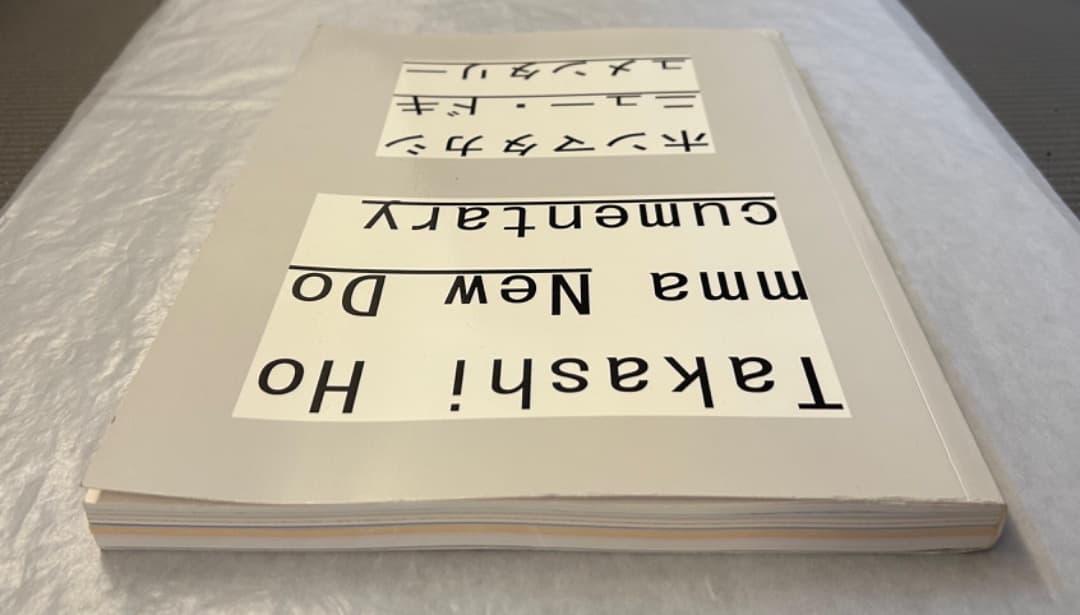 Takashi Ho
mma New Do
cumentary
ホンマタカシ
ニュー・ドキ
ュメンタリー